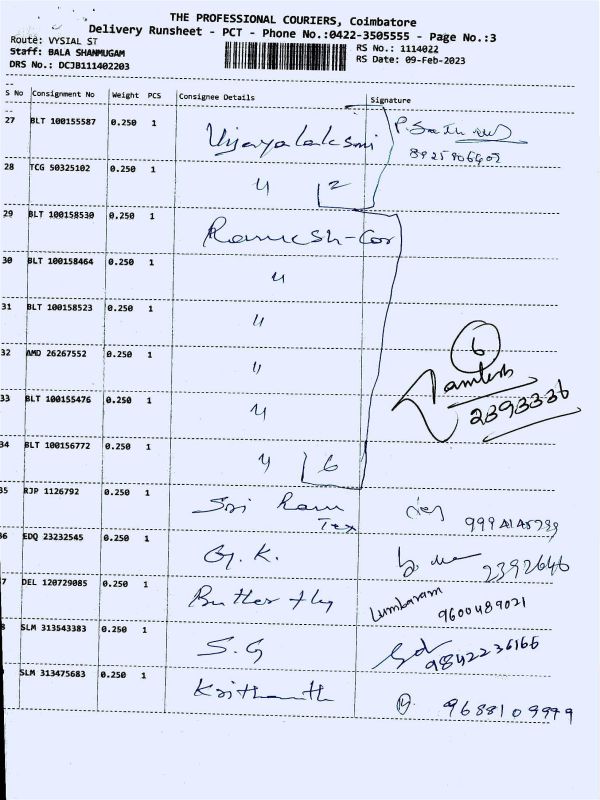 THE PROFESSIONAL COURIERS, Coimbatore
Delivery Runsheet - PCT - Phone No.:0422-3505555 - Page No.:3
Route: VYSIAL ST
Staff: BALA SHANMUGAM
DRS No.: DCJB111402203
RS No.: 1114022
RS Date: 09-Feb-2023
S No Consignment No Weight PCS Consignee Details Signature
27 BLT 100155587 0.250 1 Vijayalaksmi
8925906402
28 TCG 50325102 0.250 1 〃 2
29 BLT 100158530 0.250 1 Ramesh-Cor
30 BLT 100158464 0.250 1 〃
31 BLT 100158523 0.250 1 〃
32 AMD 26267552 0.250 1 〃 6
33 BLT 100155476 0.250 1 〃 2393336
34 BLT 100156772 0.250 1 〃 6
35 RJP 1126792 0.250 1 Sri Ram Tex
36 EDQ 23232545 0.250 1 G. K. 2392646
7 DEL 120729085 0.250 1 Butterfly Lumbaram 9600489021
8 SLM 313543383 0.250 1 S.G 9842236166
SLM 313475683 0.250 1 Krithanth 9688109979